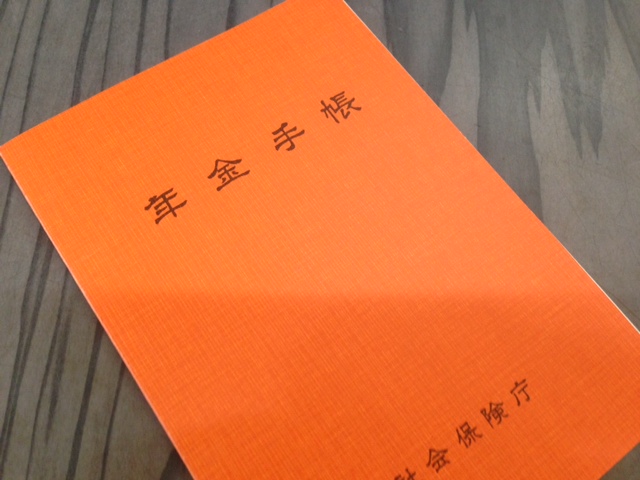 年金手帳
社会保険庁